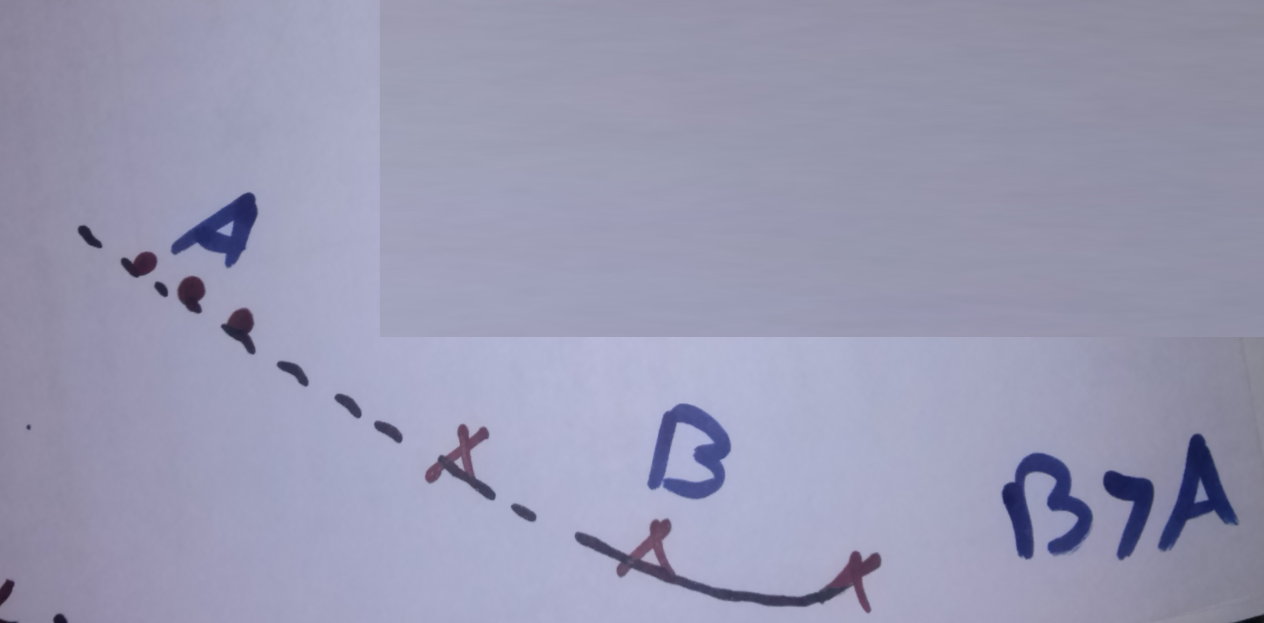 A
B
B>A